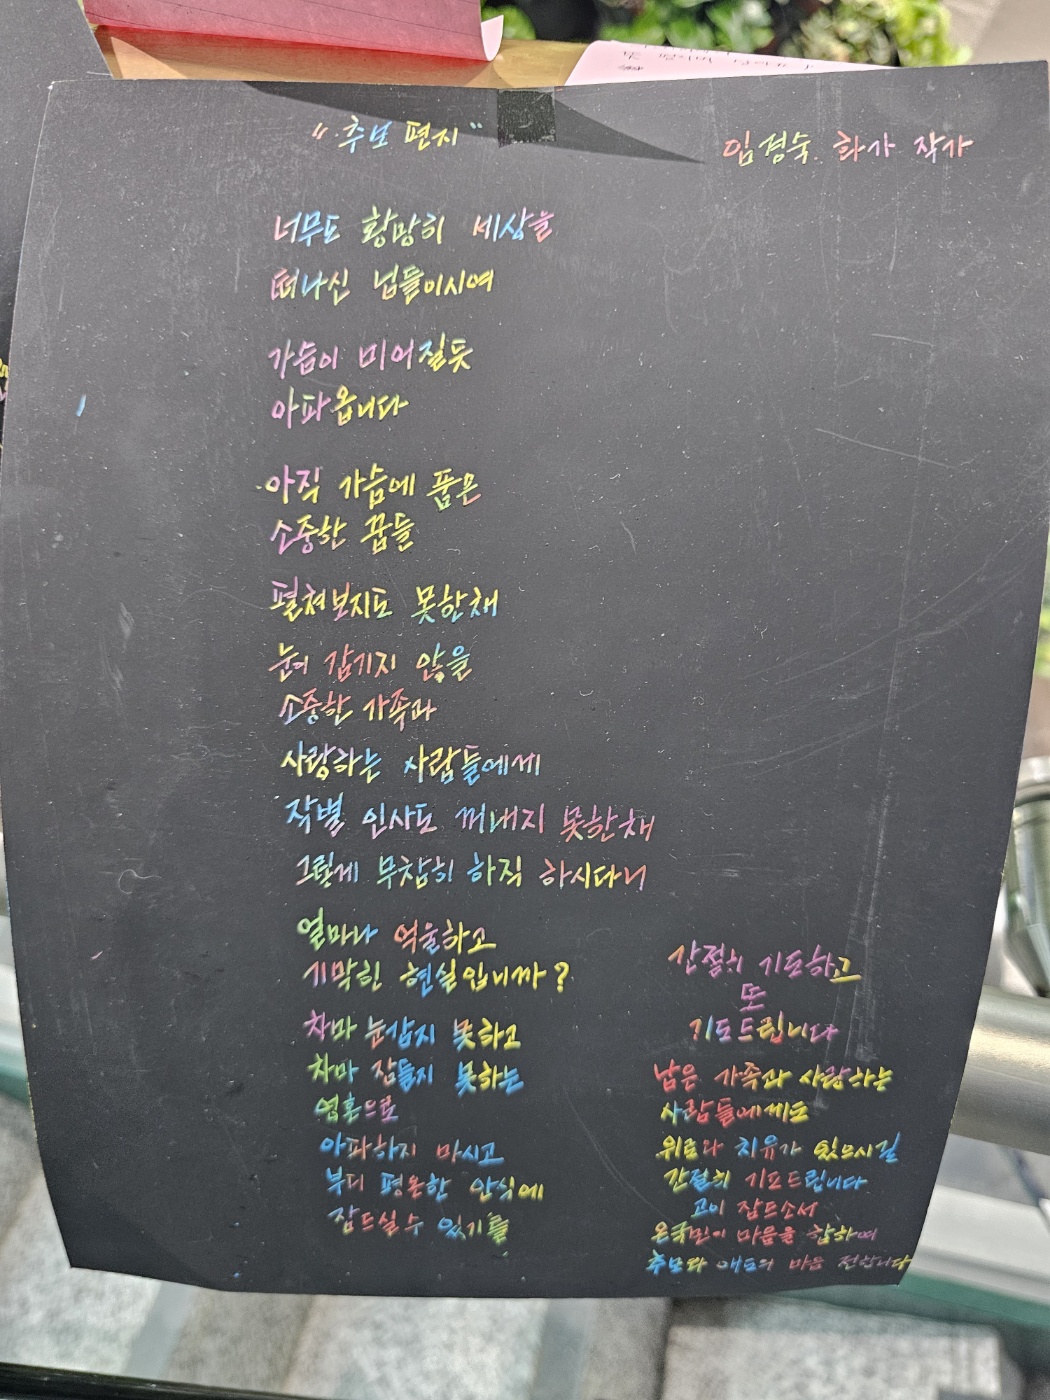 "추모 편지"
임경숙 화가 작가
너무도 황망히 세상을
떠나신 넋들이시여
가슴이 미어질듯
아파옵니다
아직 가슴에 품은
소중한 꿈들
펼쳐보지도 못한채
눈에 감기지 않을
소중한 가족과
사랑하는 사람들에게
작별 인사도 꺼내지 못한채
그렇게 무참히 하직 하시다니
얼마나 억울하고
기막힌 현실입니까?
차마 눈감지 못하고
차마 잠들지 못하는
영혼으로
아파하지 마시고
부디 평온한 안식에
잠드실 수 있기를
간절히 기도하고
또
기도드립니다
남은 가족과 사랑하는
사람들에게도
위로와 치유가 있으시길
간절히 기도드립니다
고이 잠드소서
온국민이 마음을 합하여
추모와 애도의 마음 전합니다